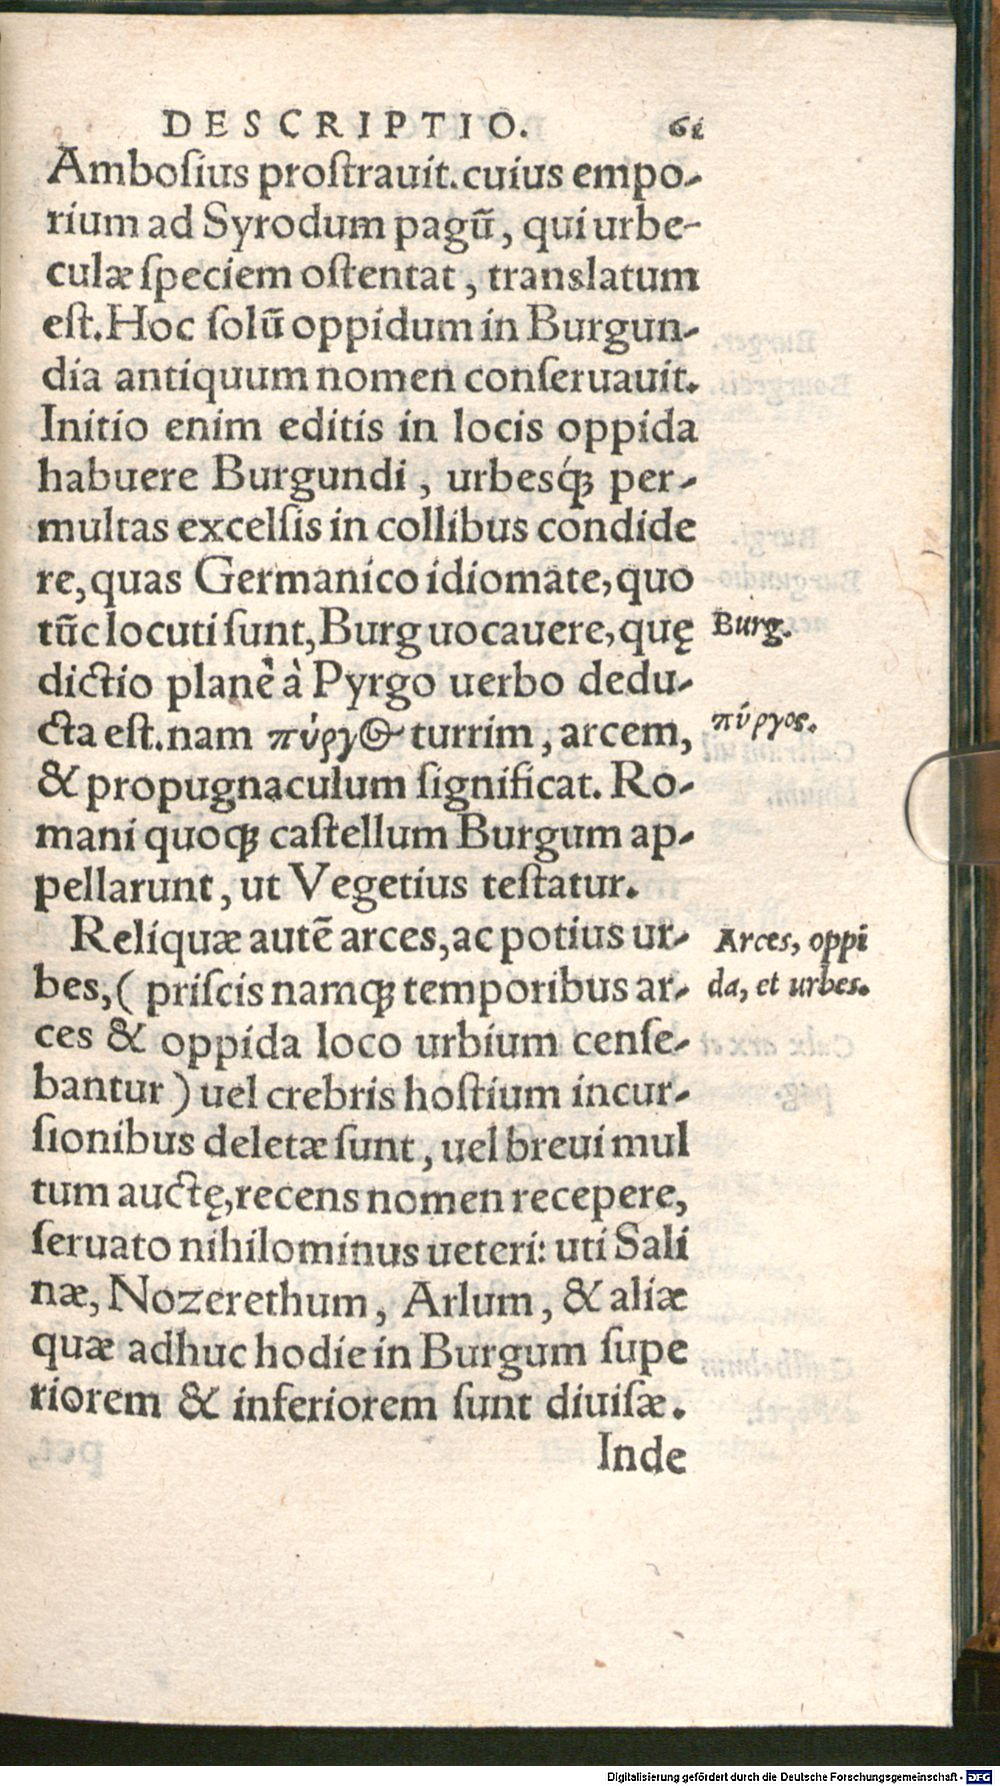 DESCRIPTIO. 61
Amboſius proſtrauit. cuius empo-
rium ad Syrodum pagũ, qui urbe-
culæ ſpeciem oſtentat, translatum
eſt. Hoc ſolũ oppidum in Burgun-
dia antiquum nomen conſeruauit.
Initio enim editis in locis oppida
habuere Burgundi, urbesq́ꝫ per-
multas excelſis in collibus condide
re, quas Germanico idiomate, quo
tũc locuti ſunt, Burg uocauere, quę
Burg.
dictio planè à Pyrgo uerbo dedu-
cta est. nam πύργος turrim, arcem,
πύργος.
& propugnaculum ſignificat. Ro-
mani quoqꝫ caſtellum Burgum ap-
pellarunt, ut Vegetius teſtatur.
Reliquæ autẽ arces, ac potius ur-
Arces, oppi
bes, (priſcis namqꝫ temporibus ar-
da, et urbes.
ces & oppida loco urbium cenſe-
bantur) uel crebris hoſtium incur-
ſionibus deletæ ſunt, uel breui mul
tum auctę, recens nomen recepere,
ſeruato nihilominus ueteri: uti Sali
næ, Nozerethum, Arlum, & aliæ
quæ adhuc hodie in Burgum ſupe
riorem & inferiorem ſunt diuiſæ.
Inde
Digitalisierung gefördert durch die Deutsche Forschungsgemeinschaft - DFG